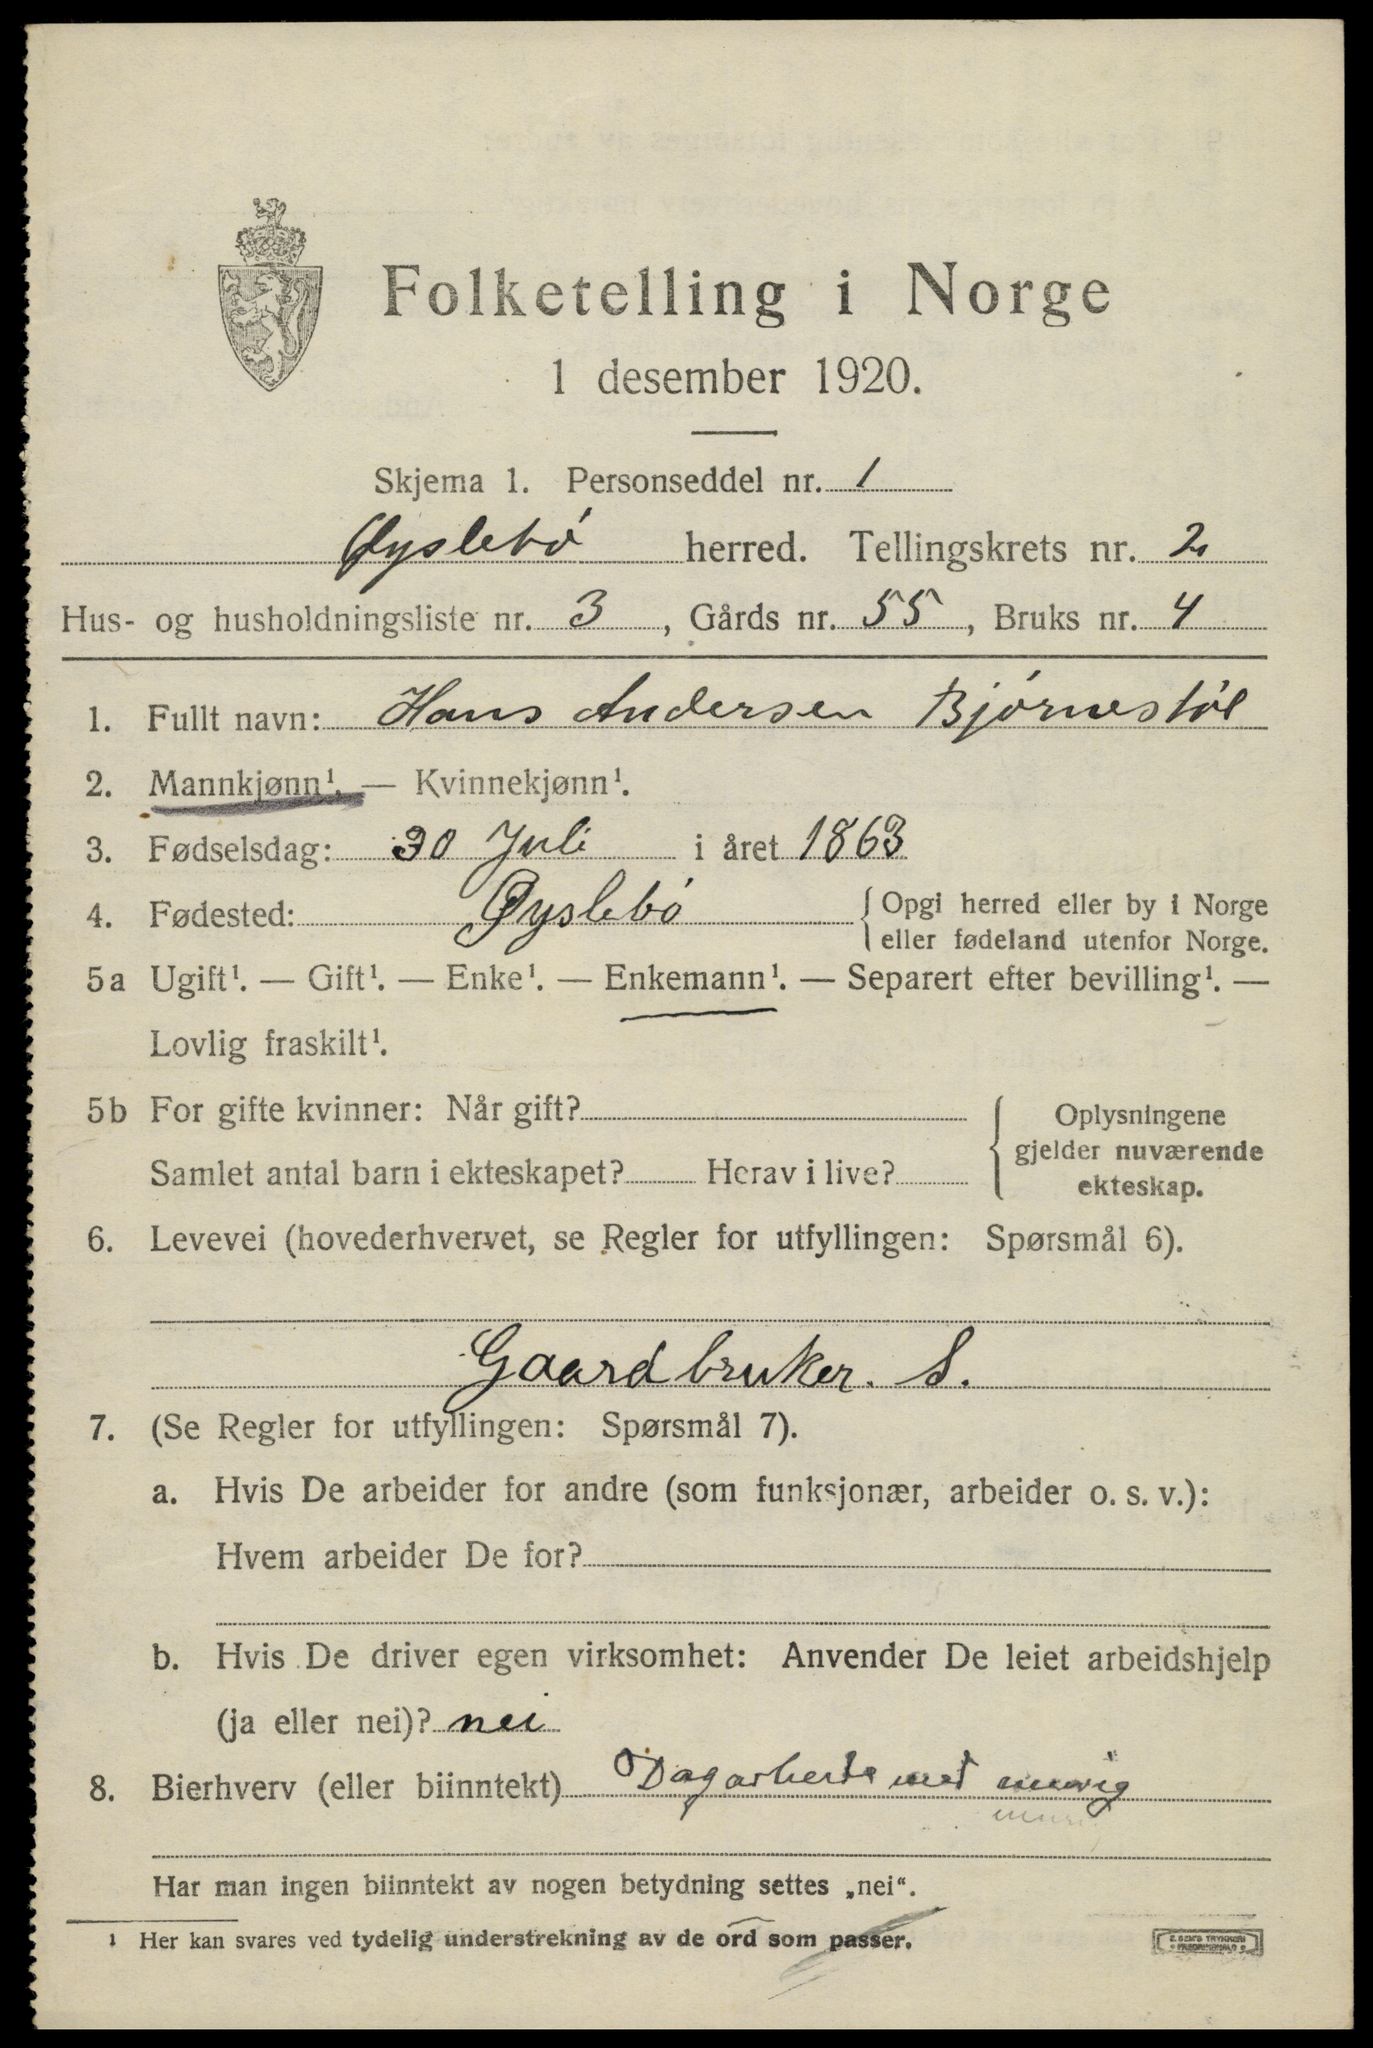 Folketelling i Norge
1 desember 1920.
Skjema 1. Personseddel nr. 1
Øyslebø herred. Tellingskrets nr. 2
Hus- og husholdningsliste nr. 3, Gårds nr. 55, Bruks nr. 4
1. Fullt navn: Hans Andersen Bjørnestøl
2. Mannkjønn¹. — Kvinnekjønn¹.
3. Fødselsdag: 30 Juli i året 1863
4. Fødested: Øyslebø { Opgi herred eller by i Norge
eller fødeland utenfor Norge.
5a Ugift¹. — Gift¹. — Enke¹. — Enkemann¹. — Separert efter bevilling¹. —
Lovlig fraskilt¹.
5b For gifte kvinner: Når gift? { Oplysningene
gjelder nuværende
Samlet antal barn i ekteskapet? Herav i live? ekteskap.
6. Levevei (hovederhvervet, se Regler for utfyllingen: Spørsmål 6).
Gaardbruker. S.
7. (Se Regler for utfyllingen: Spørsmål 7).
a. Hvis De arbeider for andre (som funksjonær, arbeider o. s. v.):
Hvem arbeider De for?
b. Hvis De driver egen virksomhet: Anvender De leiet arbeidshjelp
(ja eller nei)? nei
8. Bierhverv (eller biinntekt) Dagarbeide med
Har man ingen biinntekt av nogen betydning settes „nei“.
1 Her kan svares ved tydelig understrekning av de ord som passer.